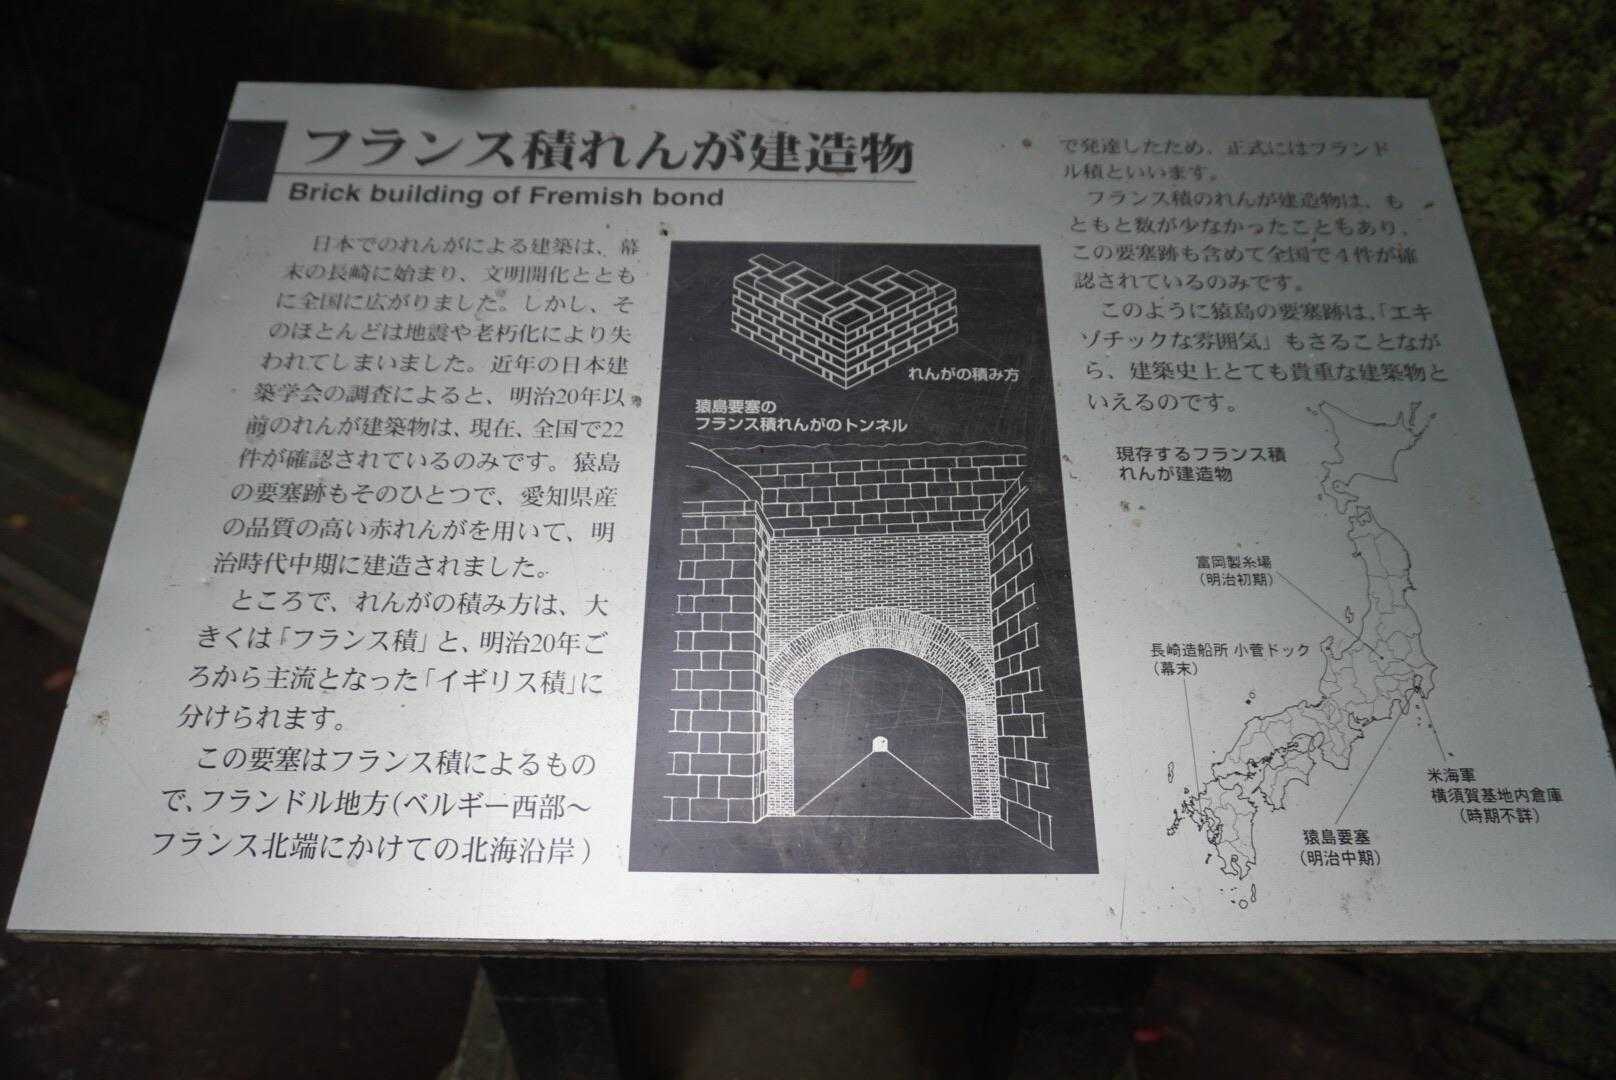 フランス積れんが建造物
Brick building of Fremish bond
日本でのれんがによる建築は、幕
末の長崎に始まり、文明開化ととも
に全国に広がりました。しかし、そ
のほとんどは地震や老朽化により失
われてしまいました。近年の日本建
築学会の調査によると、明治20年以
前のれんが建築物は、現在、全国で22
件が確認されているのみです。猿島
の要塞跡もそのひとつで、愛知県産
の品質の高い赤れんがを用いて、明
治時代中期に建造されました。
ところで、れんがの積み方は、大
きくは「フランス積」と、明治20年ご
ろから主流となった「イギリス積」に
分けられます。
この要塞はフランス積によるもの
で、フランドル地方(ベルギー西部〜
フランス北端にかけての北海沿岸)
で発達したため、正式にはフランド
ル積といいます。
フランス積のれんが建造物は、も
ともと数が少なかったこともあり、
この要塞跡も含めて全国で4件が確
認されているのみです。
このように猿島の要塞跡は、「エキ
ゾチックな雰囲気」もさることなが
ら、建築史上とても貴重な建築物と
いえるのです。
れんがの積み方
猿島要塞の
フランス積れんがのトンネル
現存するフランス積
れんが建造物
富岡製糸場
(明治初期)
長崎造船所 小菅ドック
(幕末)
米海軍
横須賀基地内倉庫
(時期不詳)
猿島要塞
(明治中期)